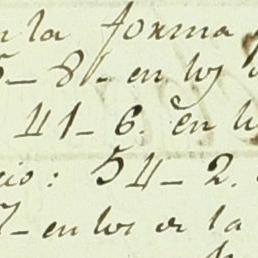 la forma
5 - 8. en los
41 - 6. en l
cio: 54 - 2.
7 - en los de la